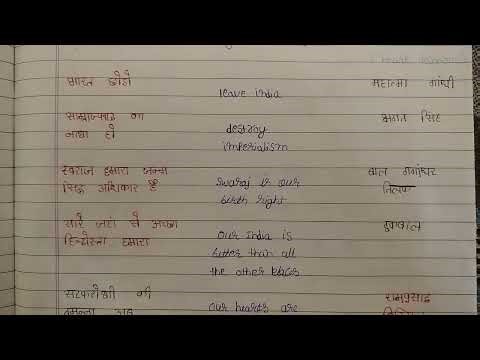 भारत छोड़ो leave india महात्मा गांधी
साम्राज्यवाद का भगत सिंह
नाश हो destroy
imperialism
स्वराज हमारा जन्म बाल गंगाधर
सिद्ध अधिकार है swaraj is our तिलक
birth right
सारे जहां से अच्छा इकबाल
हमारा our India is
better than all
the other places
सरफरोशी की रामप्रसाद
तमन्ना अब our hearts are